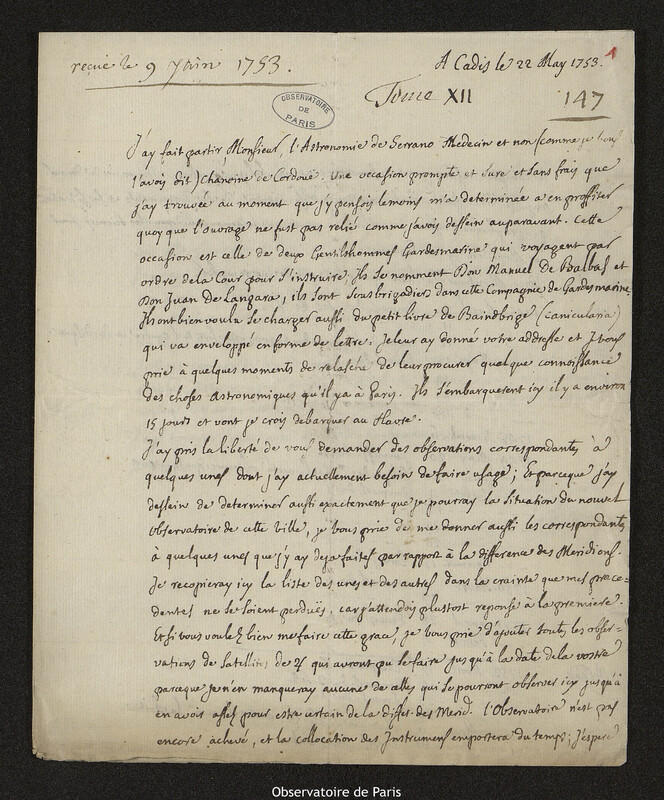 reçue le 9 Juin 1753.
A Cadis le 22 May 1753.
1
Tome XII
147
OBSERVATOIRE DE PARIS
J'ay fait partir, Monsieur, l'Astronomie de Serrano Medecin et non (comme je vous
l'avois dit) Chanoine de Cordoüe. Une occasion prompte et sure et sans frais que
j'ay trouvée au moment que j'y pensois le moins m'a determinée a en proffiter
quoy que l'ouvrage ne fust pas relié comme j'avois dessein auparavant. Cette
occasion est celle de deux Gentilshommes Gardesmarine qui voyagent par
ordre de la Cour pour s'instruire, Ils se nomment Don Manuel de Balbas et
Don Juan de Langara, ils sont sousbrigadiers dans cette Compagnie de Gardesmarine
Ils ont bien voulu se charger aussi du petit livre de Baindbrige (canicularia)
qui va enveloppé en forme de lettre. Je leur ay donné votre addresse et J. vous
prie à quelques moments de relasche de leur procurer quelque connoissance
des choses astronomiques qu'il y a à Paris. Ils s'embarquerent icy il y a environ
15 jours et vont je crois debarquer au Havre.
J'ay pris la liberté de vous demander des observations correspondantes à
quelques unes dont j'ay actuellement besoin de faire usage; Et parceque j'ay
dessein de determiner aussi exactement que je pourray la situation du nouvel
observatoire de cette ville, je vous prie de me donner aussi les correspondantes
à quelques unes que j'y ay deja faites par rapport à la difference des Meridiens.
Je recopieray icy la liste des unes et des autres dans la crainte que mes prece-
dentes ne se soient perduës, car j'attendois plustost reponse à la premiere.
Et si vous voulés bien me faire cette grace, je vous prie d'ajouter toutes les obser-
vations de Satellites de ♃ qui auront pu se faire jusqu'à la date de la vostre
parceque je n'en manqueray aucune de celles qui se pourront observer icy jusqu'à
en avoir assés pour estre certain de la differ. des Merid. l'Observatoire n'est pas
encore achevé, et la collocation des Instrumens emportera du temps; J'espere
Observatoire de Paris